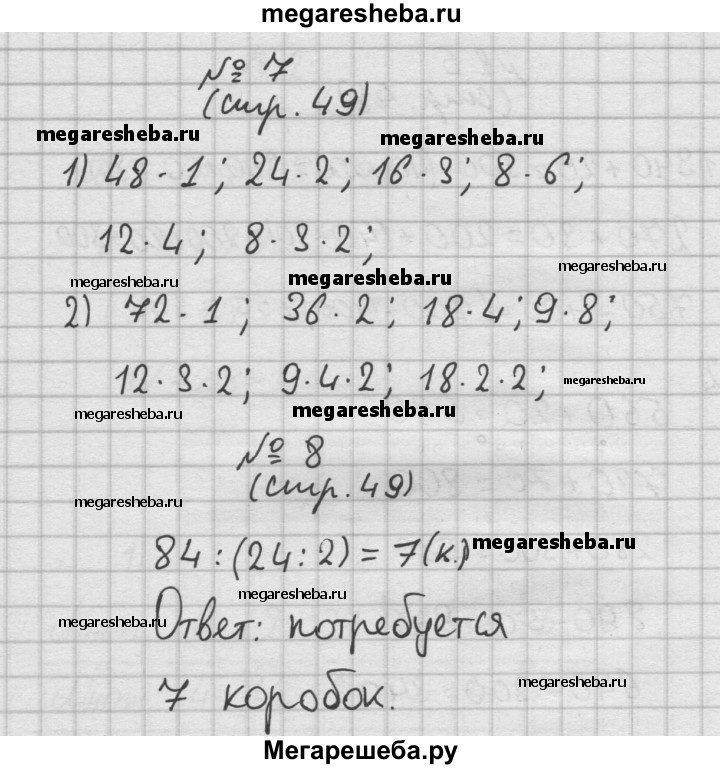 megaresheba.ru
№ 7
(стр. 49)
megaresheba.ru megaresheba.ru
1) 48 · 1; 24 · 2; 16 · 3; 8 · 6;
12 · 4; 8 · 3 · 2;
megaresheba.ru megaresheba.ru megaresheba.ru
2) 72 · 1; 36 · 2; 18 · 4; 9 · 8;
12 · 3 · 2; 9 · 4 · 2; 18 · 2 · 2; megaresheba.ru
megaresheba.ru megaresheba.ru
№ 8
(стр. 49)
megaresheba.ru
84 : (24 : 2) = 7 (к.) megaresheba.ru
megaresheba.ru
megaresheba.ru Ответ: потребуется
7 коробок. megaresheba.ru
Мегарешеба.ру